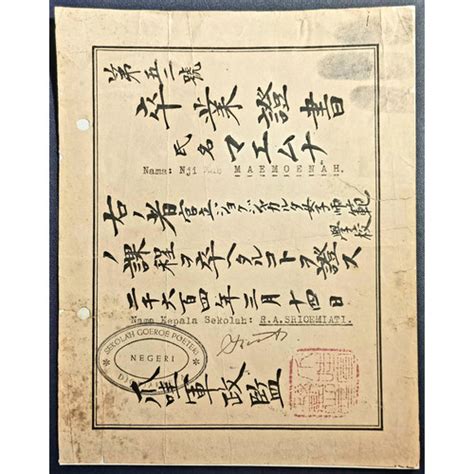 第五三號
卒業證書
氏名 マエムナ
Nama: Nji MAEMOENAH.
右ノ者官立ジョクジャカルタ女子師範學校
ノ課程ヲ卒ヘタルコトヲ證ス
二千六百四年三月十四日
Nama Kepala Sekolah: R.A.SRIOEMIATI.
SEKOLAH GOEROE POETERI
NEGERI
軍政監